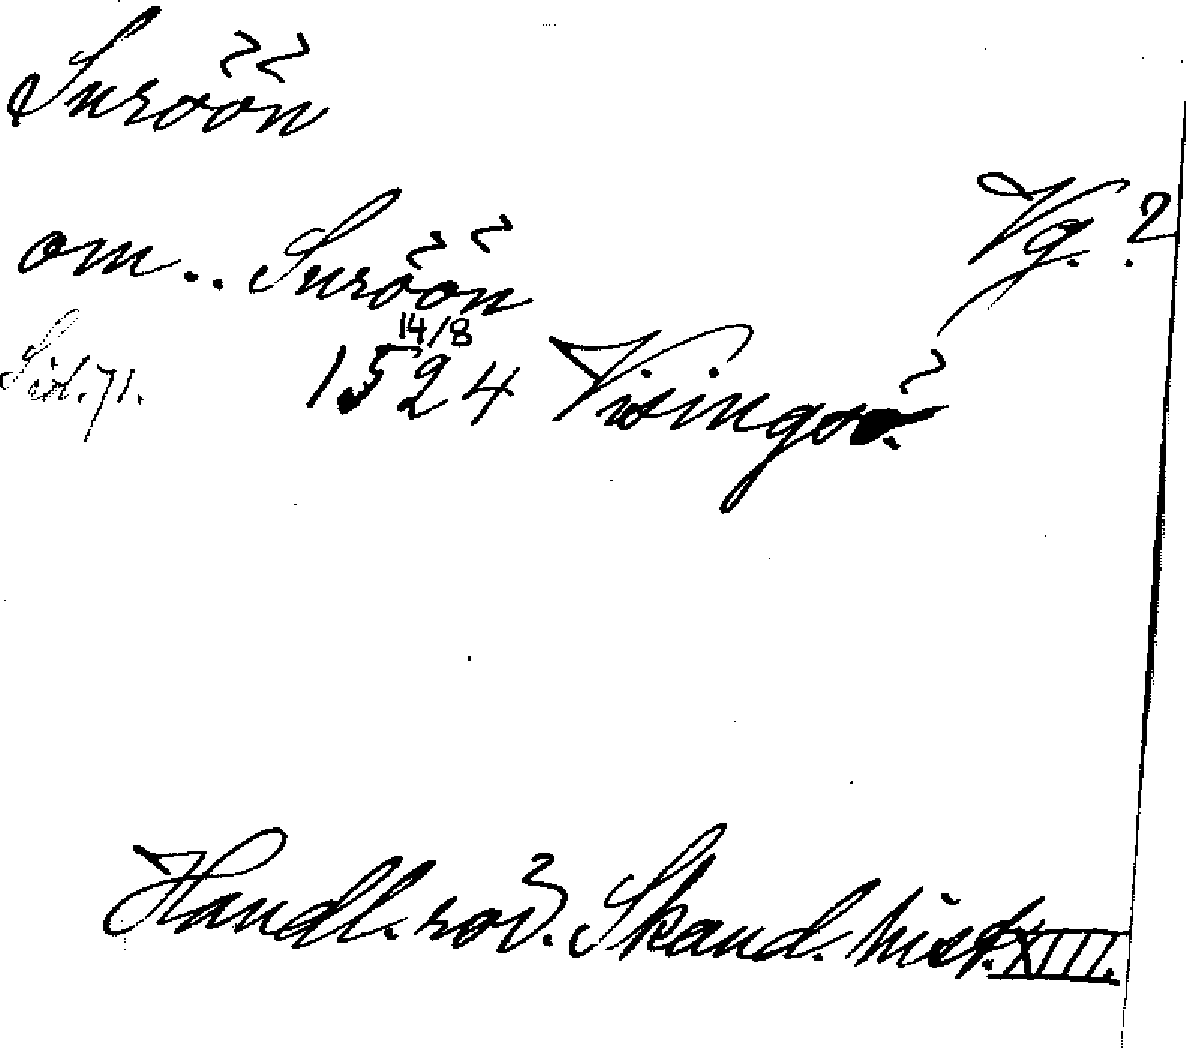 Suröön
Vg. ?
om.. Suröön
14/8
Sid. 71. 1524 Visingsö.
Handl. rör. Skand. hist. XIII.